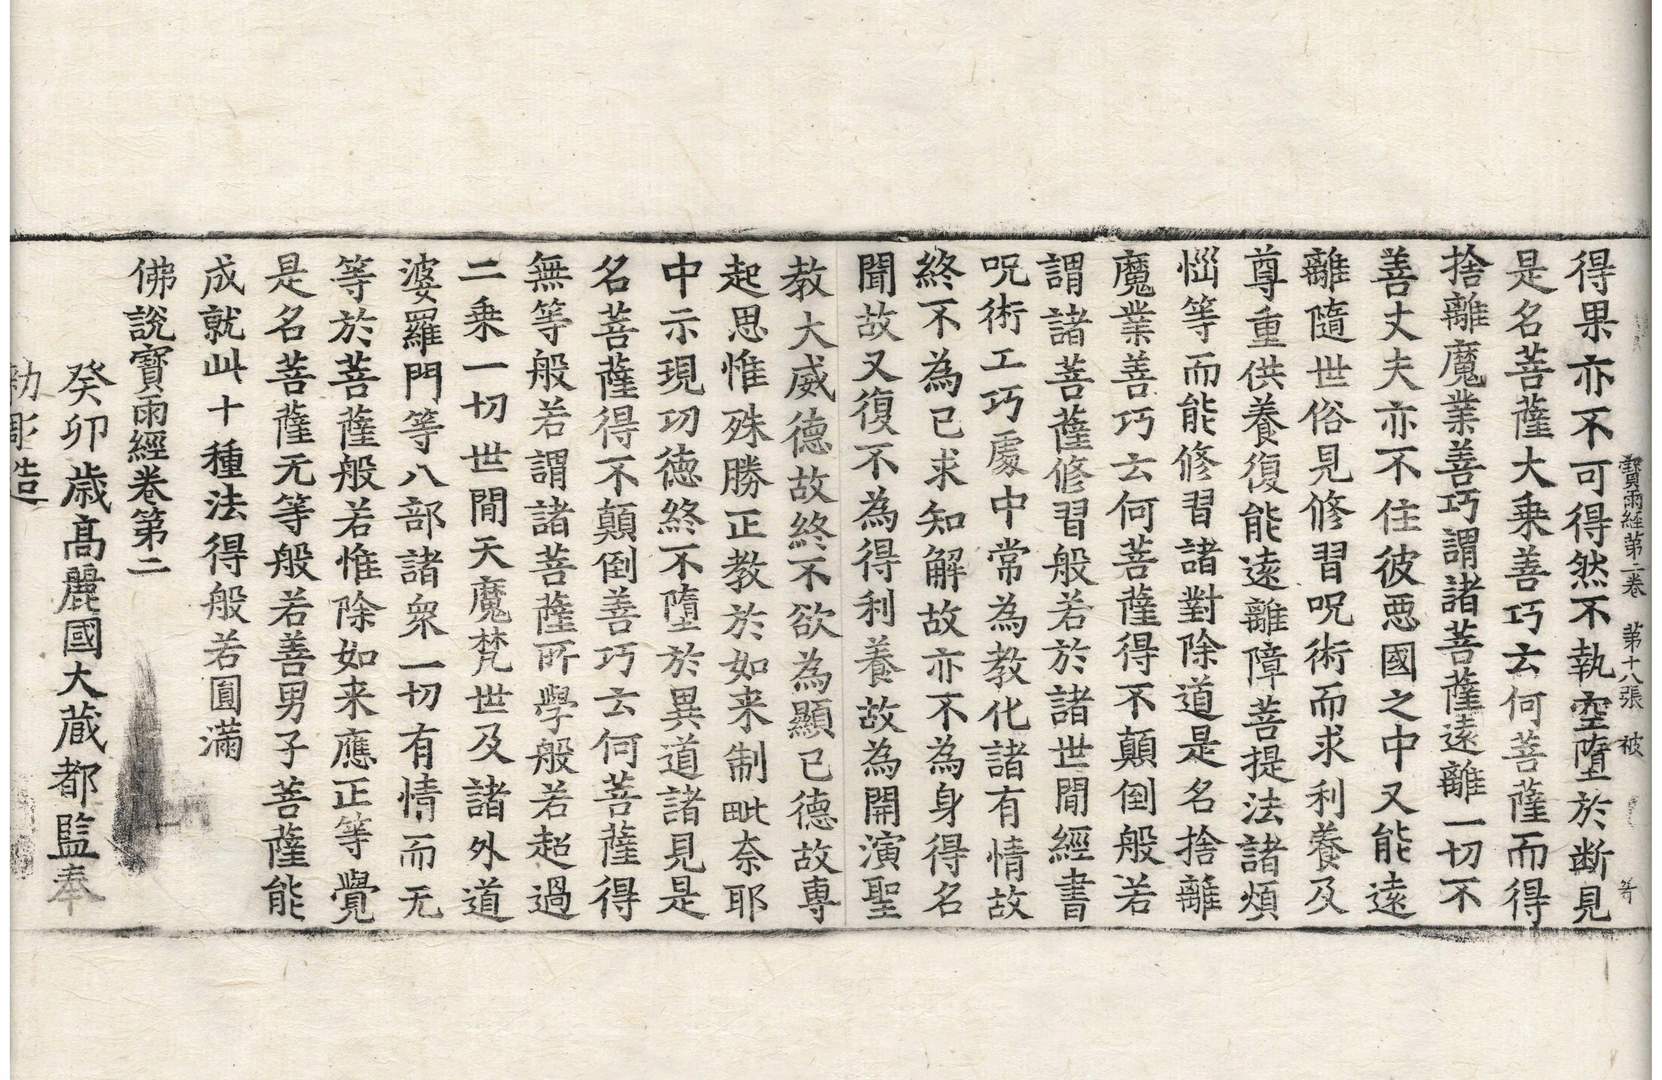 寶雨經第二卷 第十八張 被
得果亦不可得然不執空墮於断見
是名菩薩大乗善巧云何菩薩而得
捨離魔業善巧謂諸菩薩遠離一切不
善丈夫亦不住彼惡國之中又能遠
離隨世俗見修習呪術而求利養及
尊重供養復能遠離障菩提法諸煩
惱等而能修習諸對除道是名捨離
魔業善巧云何菩薩得不顛倒般若
謂諸菩薩修習般若於諸世閒經書
呪術工巧處中常為教化諸有情故
終不為己求知解故亦不為身得名
聞故又復不為得利養故為開演聖
教大威德故終不欲為顯己德故専
起思惟殊勝正教於如来制毗奈耶
中示現功德終不墮於異道諸見是
名菩薩得不顛倒善巧云何菩薩得
無等般若謂諸菩薩所學般若超過
二乗一切世閒天魔梵世及諸外道
婆羅門等八部諸衆一切有情而无
等於菩薩般若惟除如来應正等覺
是名菩薩无等般若善男子菩薩能
成就此十種法得般若圓滿
佛說寶雨經卷第二
癸卯歳高麗國大蔵都監奉
勑彫造